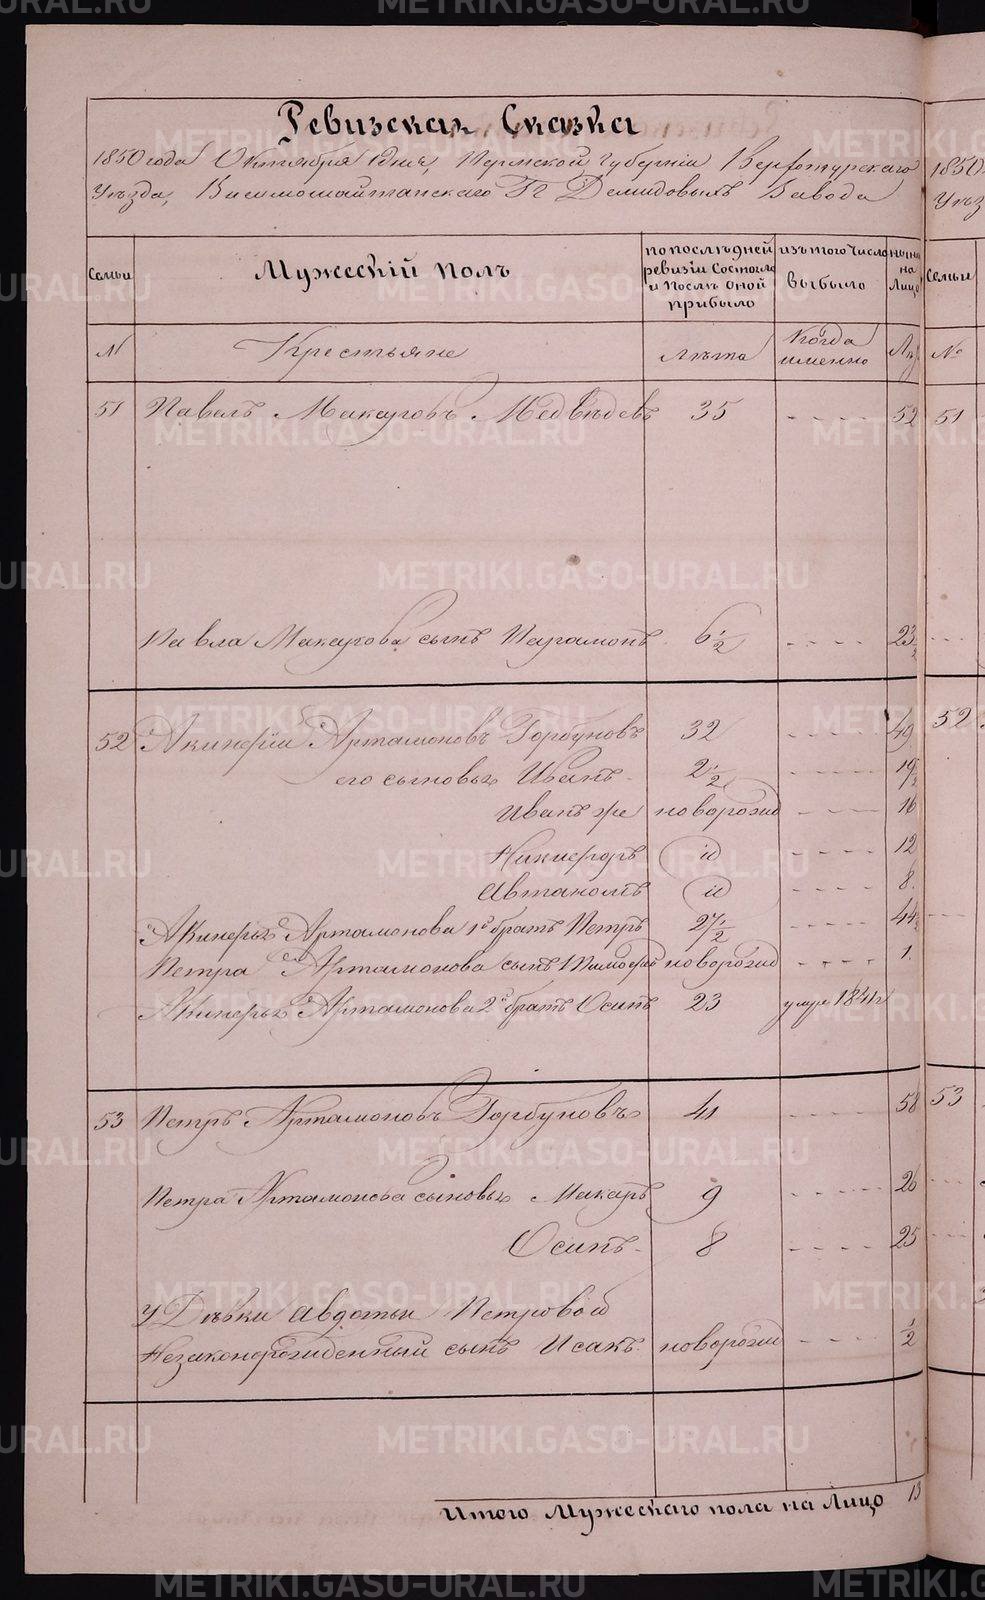 Ревизская Сказка
1850 года Октября дня, Пермской губерніи Верхотурскаго
Уѣзда, Висимошайтанскаго Гг Демидовыхъ Завода
Семьи Мужескій полъ по послѣдней изъ того числа ныне
ревизіи Состояло на
и послѣ оной выбыло Лицо
прибыло
N Крестьяне лѣта Когда
именно
51 Павелъ Макаровъ Медвѣдевъ 35 - - - - 52
Павла Макарова сынъ Парамонъ 6 1/2 - - - - 23 1/2
52 Акинфій Артамоновъ Горбуновъ 32 - - - - 49
его сыновья Иванъ 2 1/2 - - - - 19 1/2
Иванъ же новорожд - - - - 16
Никифоръ id - - - - 12
Автаномъ id - - - - 8
Акинфья Артамонова 1й братъ Петръ 27 1/2 - - - - 44 1/2
Петра Артамонова сынъ Тимофей новорожд - - - - 1.
Акинфья Артамонова 2й братъ Осипъ 23 умре 1841г
53 Петръ Артамоновъ Горбуновъ 41 - - - - 58
Петра Артамонова сыновья Макаръ 9 - - - - 26
Осипъ 8 - - - - 25
у Дѣвки Авдотьи Петровой
Незаконорожденный сынъ Исакъ новорожд - - - - 1/2
Итого Мужескаго пола на Лицо 13
1850
Уѣз
Семьи
№
51
52
53
METRIKI.GASO-URAL.RU